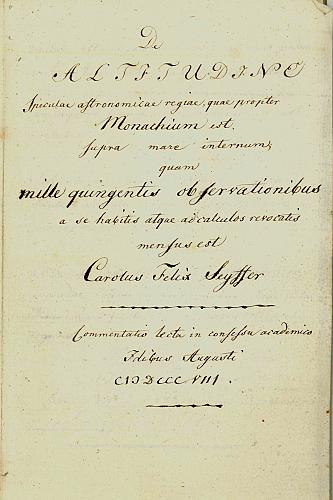 De
ALTITUDINE
Speculae astronomicae regiae, quae propter
Monachium est,
supra mare internum,
quam
mille quingentis observationibus
a se habitis atque ad calculos revocatis
mensus est
Carolus Felix Seyffer
Commentatio lecta in consessu academico
Idibus Augusti
CIƆDCCCVIII.